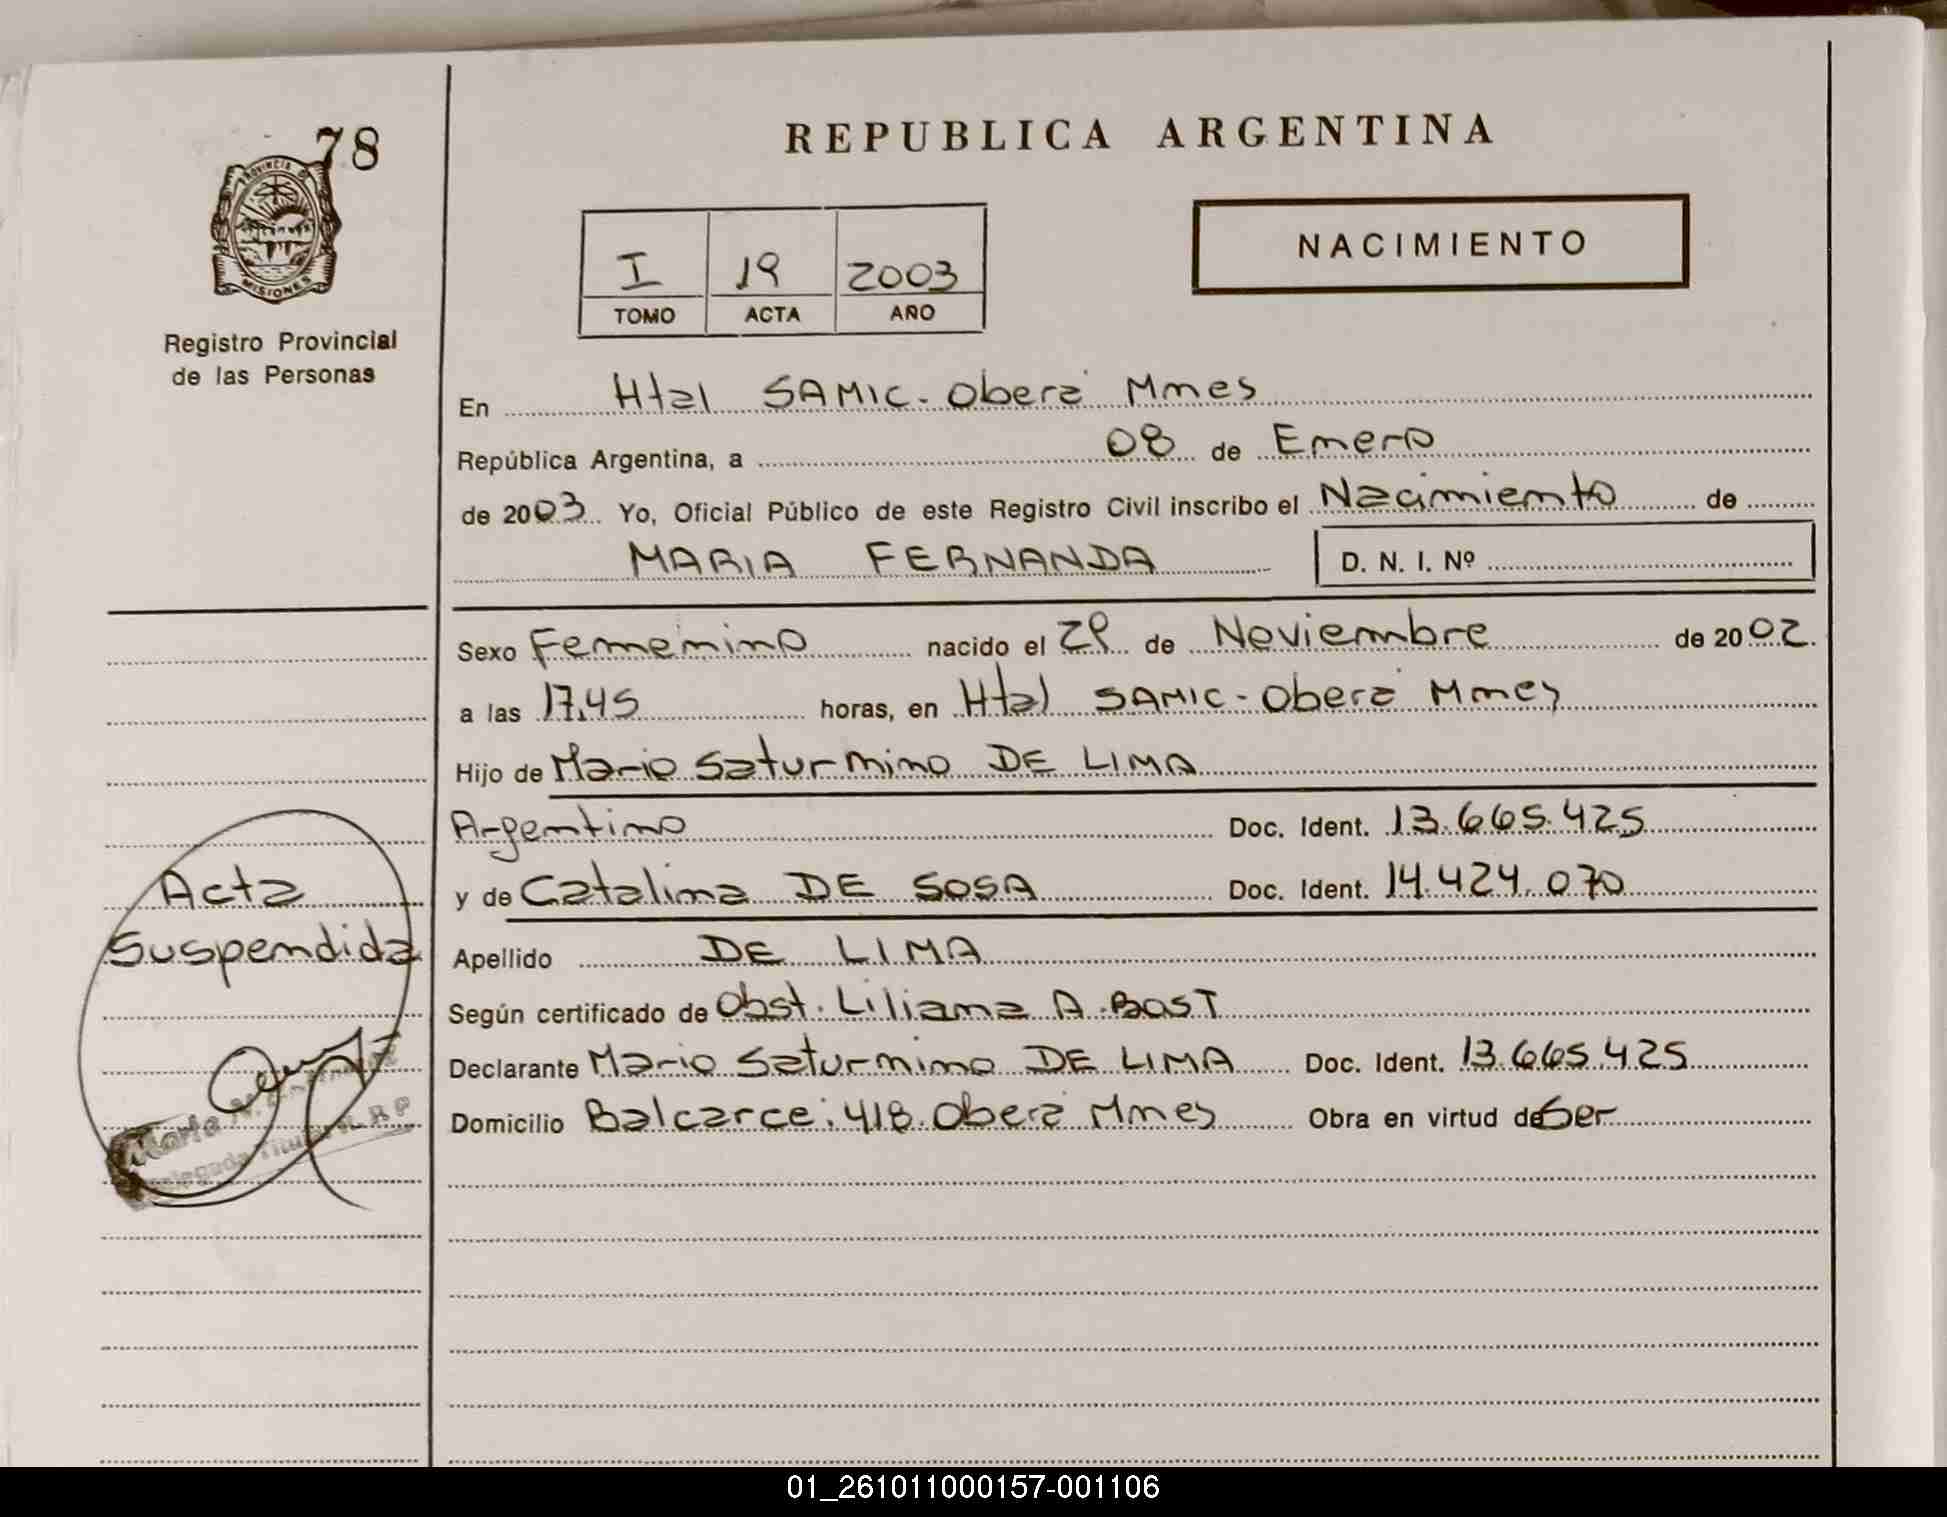 78
PROVINCIA DE
MISIONES
Registro Provincial
de las Personas
REPUBLICA ARGENTINA
NACIMIENTO
I 19 2003
TOMO ACTA AÑO
En Htal SAMIC - Oberá Mnes
República Argentina, a 08 de Enero
de 2003 Yo, Oficial Público de este Registro Civil inscribo el Nacimiento de
MARIA FERNANDA D. N. I. Nº
Sexo Femenino nacido el 29 de Noviembre de 2002.
a las 17,45 horas, en Htal SAMIC - Oberá Mnes
Hijo de Mario Saturnino DE LIMA
Argentino Doc. Ident. 13.665.425
y de Catalina DE SOSA Doc. Ident. 14.424.070
Apellido DE LIMA
Según certificado de Obst. Liliana A. BAST
Declarante Mario Saturnino DE LIMA Doc. Ident. 13.665.425
Domicilio Balcarce: 418. Oberá Mnes Obra en virtud de Ser
Acta
Suspendida
Marta N.
Delegada Titular R. P.
01_261011000157-001106